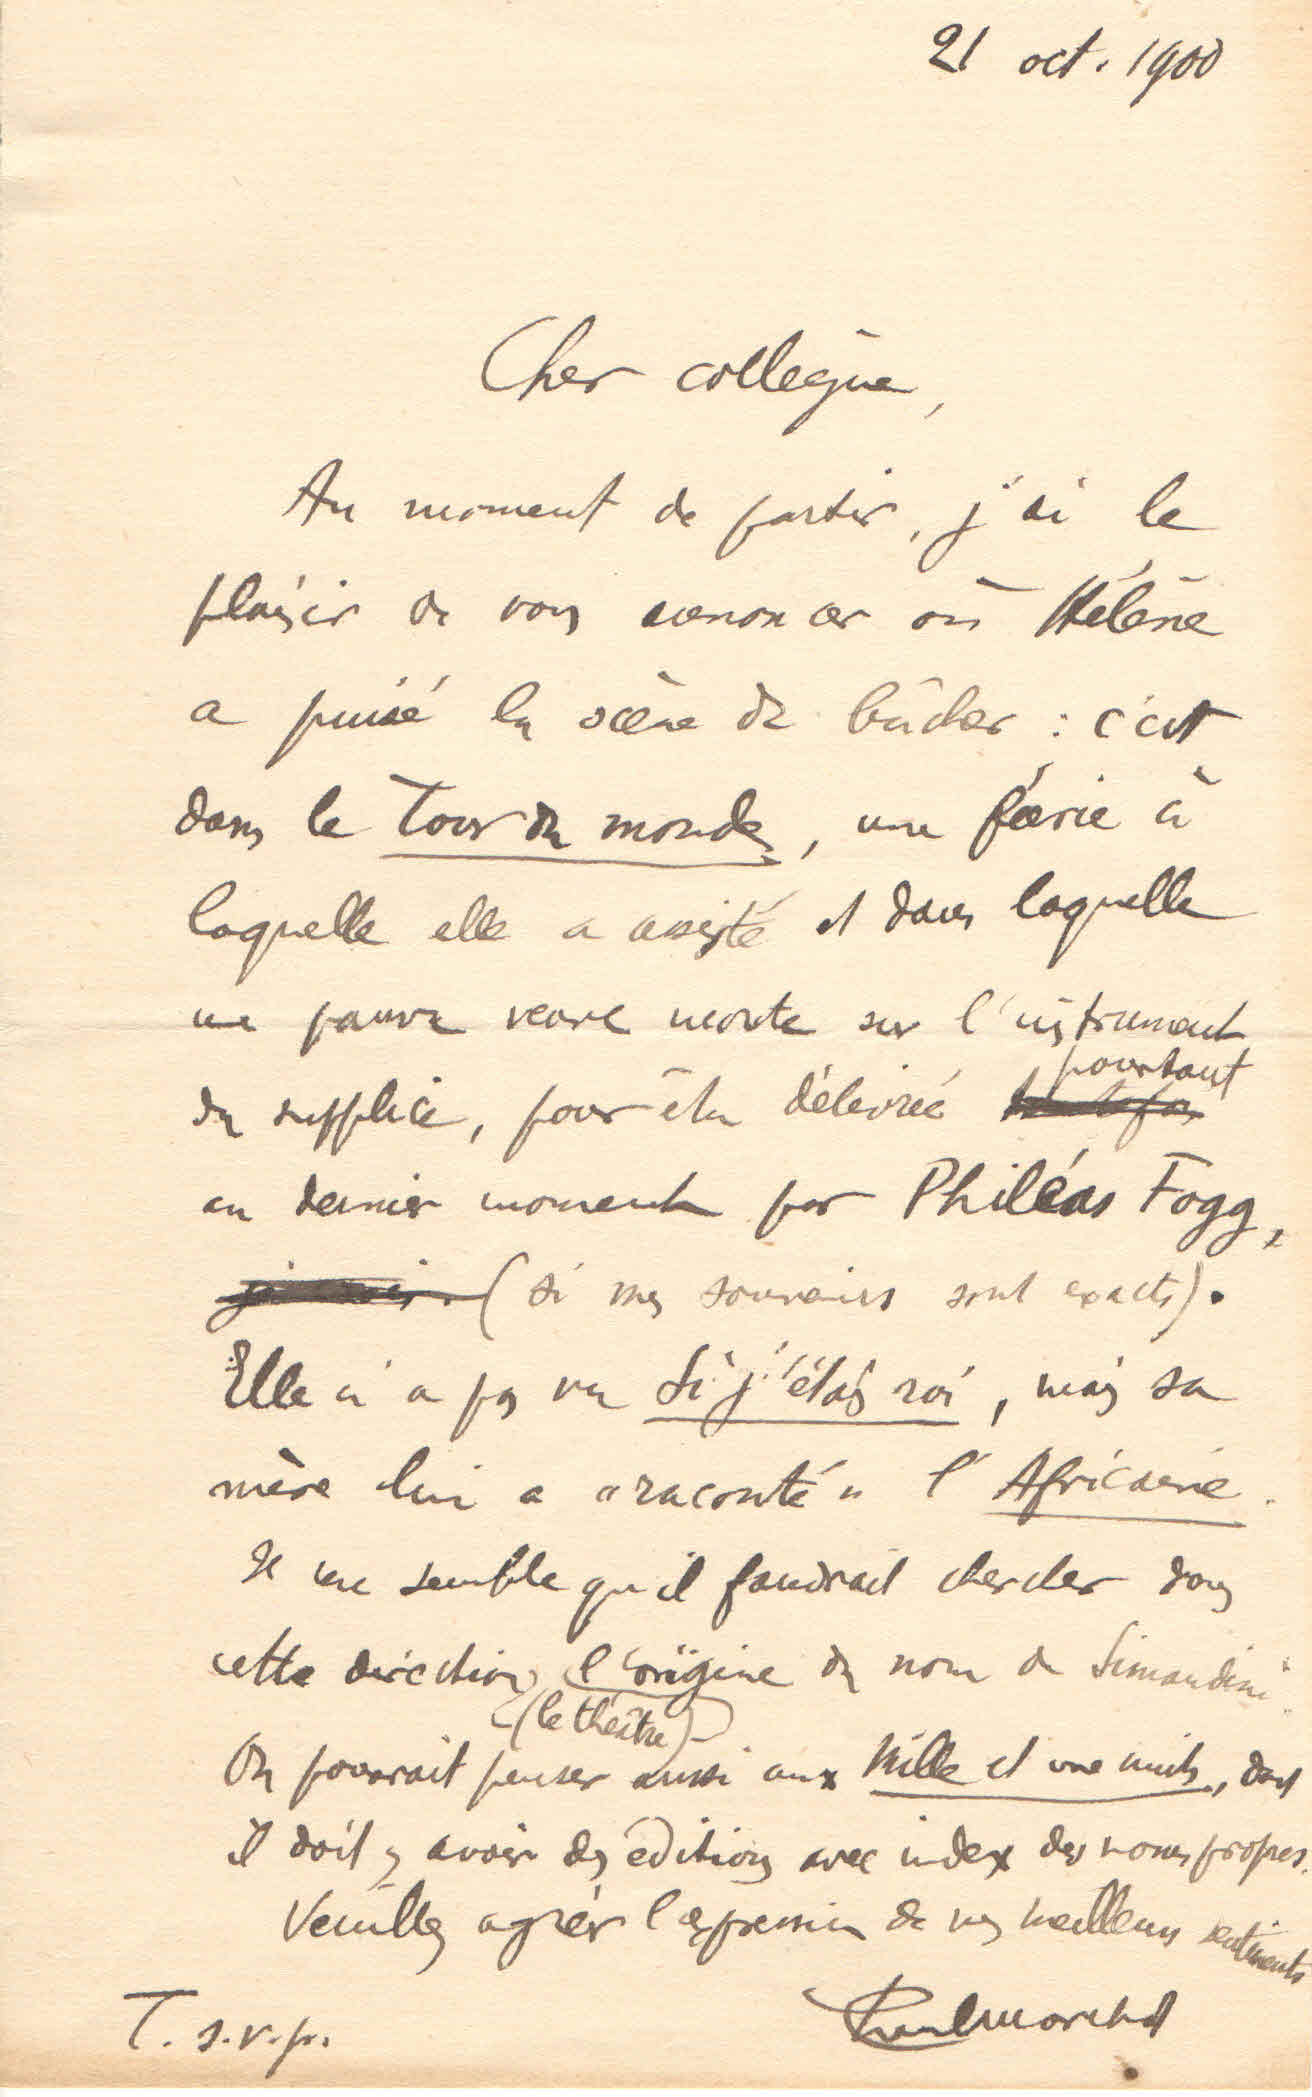 21 oct. 1900
Cher collègue,
Au moment de partir, j'ai le
plaisir de vous annoncer où Hélène
a puisé la scène du bûcher : c'est
dans le Tour du monde, une féerie à
laquelle elle a assisté et dans laquelle
une pauvre veuve monte sur l'instrument
du supplice, pour être délivrée pourtant
au dernier moment par Philéas Fogg,
(si mes souvenirs sont exacts).
Elle n'a pas vu Si j'étais roi, mais sa
mère lui a "raconté" l'Africaine.
Il me semble qu'il faudrait chercher dans
cette direction (le théâtre) l'origine du nom de Simandini.
On pourrait penser aussi aux Mille et une nuits, dont
il doit y avoir des éditions avec index des noms propres.
Veuillez agréer l'expression de mes meilleurs sentiments
T. s. v. p.